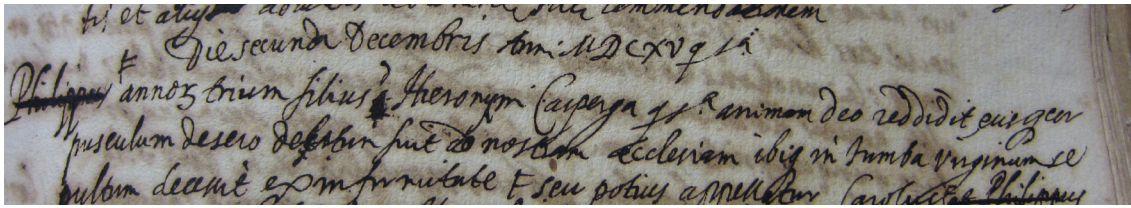 et alijs commendationem
Die secunda Decembris Anni MDCXV q sª
Philippus F annorꝫ trium filius Hieronymi Casperga q sª animam deo reddidit eius cor
pusculum de sero delatum fuit ad nostram ecclesiam ibiq in tumba virginum se
pultum decessit ex infirmitate F seu potius appellatur Carolus et Philippus